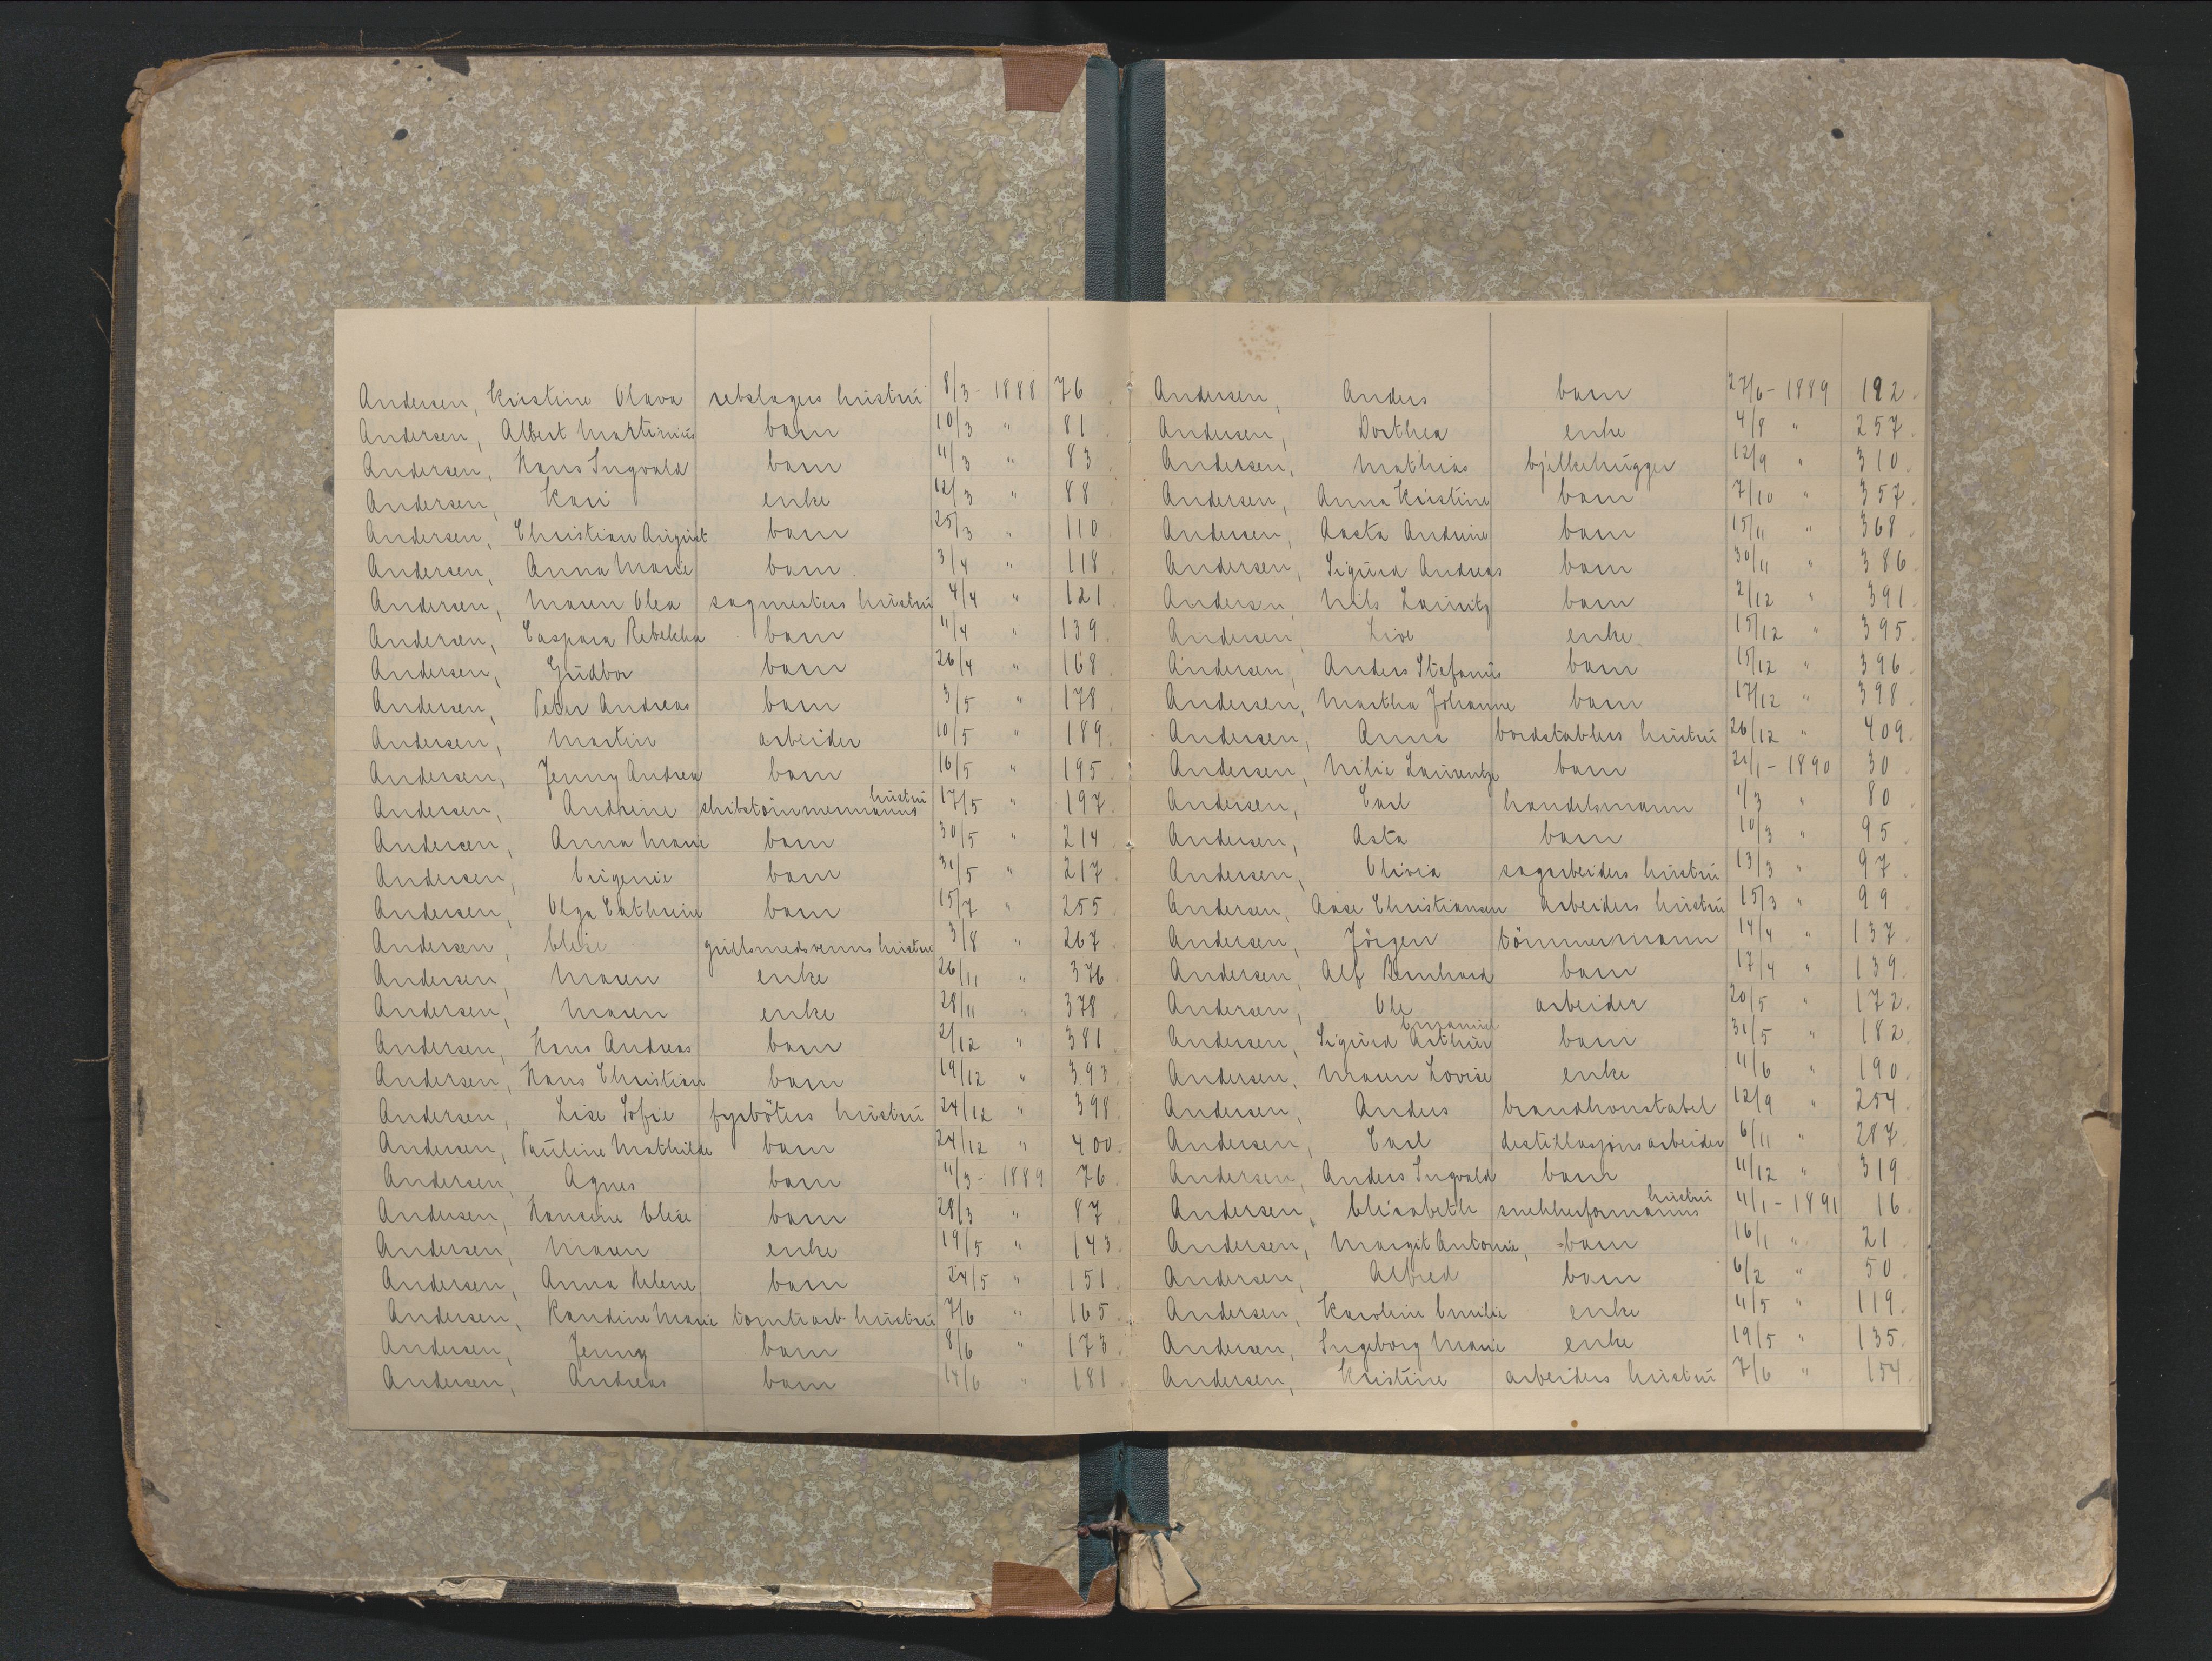 Andersen, Kristine Olava rebslagers hustru 8/3 - 1888 76
Andersen, Albert Martinius barn 10/3 " 81
Andersen, Hans Ingvald barn 11/3 " 83
Andersen, Kari enke 12/3 " 88
Andersen, Christian August barn 25/3 " 110
Andersen, Anna Marie barn 3/4 " 118
Andersen, Maren Olea sagmesters hustru 4/4 " 121
Andersen, Caspara Rebekka barn 11/4 " 139
Andersen, Gudbor barn 26/4 " 168
Andersen, Peter Andreas barn 3/5 " 178
Andersen, Martin arbeider 10/5 " 189
Andersen, Jenny Andrea barn 16/5 " 195
Andersen, Andrine skibstømmermanns hustru 17/5 " 197
Andersen, Anna Marie barn 30/5 " 214
Andersen, Eugenie barn 31/5 " 217
Andersen, Olga Cathrine barn 15/7 " 255
Andersen, Elise gullsmedsvenns hustru 3/8 " 267
Andersen, Maren enke 26/11 " 376
Andersen, Maren enke 28/11 " 378
Andersen, Hans Andreas barn 2/12 " 381
Andersen, Hans Christian barn 19/12 " 393
Andersen, Lise Sofie fyrbøters hustru 24/12 " 398
Andersen, Pauline Mathilde barn 24/12 " 400
Andersen, Agnes barn 11/3 - 1889 76
Andersen, Hansine Elise barn 28/3 " 87
Andersen, Maren enke 19/5 " 143
Andersen, Anna Helene barn 24/5 " 151
Andersen, Randine Marie tomtearb. hustru 7/6 " 165
Andersen, Jenny barn 8/6 " 173
Andersen, Andreas barn 14/6 " 181
Andersen, Anders barn 27/6 - 1889 192
Andersen, Dorthea enke 4/8 " 257
Andersen, Mathias bjelkehugger 12/9 " 310
Andersen, Anna Kristine barn 7/10 " 357
Andersen, Aasta Andrine barn 15/11 " 368
Andersen, Sigurd Andreas barn 30/11 " 386
Andersen, Nils Lauritz barn 2/12 " 391
Andersen, Live enke 15/12 " 395
Andersen, Anders Stefanus barn 15/12 " 396
Andersen, Martha Johanne barn 17/12 " 398
Andersen, Anna bordstablers hustru 26/12 " 409
Andersen, Nilie Laurentze barn 21/1 - 1890 30
Andersen, Carl handelsmann 1/3 " 80
Andersen, Asta barn 10/3 " 95
Andersen, Olivia sagarbeiders hustru 13/3 " 97
Andersen, Aase Christiansen arbeiders hustru 15/3 " 99
Andersen, Jörgen tömmermann 14/4 " 137
Andersen, Alf Bernhard barn 17/4 " 139
Andersen, Ole arbeider 20/5 " 172
Andersen, Sigurd Arthur Emanuel barn 31/5 " 182
Andersen, Maren Lovise enke 11/6 " 190
Andersen, Anders brandkonstabel 12/9 " 254
Andersen, Carl destillasjonsarbeider 6/11 " 287
Andersen, Anders Ingvald barn 11/12 " 319
Andersen, Elisabeth snekkerformanns hustru 11/1 - 1891 16
Andersen, Margit Antonie, barn 16/1 " 21
Andersen, Alfred barn 6/2 " 50
Andersen, Karoline Emilie enke 11/5 " 119
Andersen, Ingeborg Marie enke 19/5 " 135
Andersen, Kristine arbeiders hustru 7/6 " 154